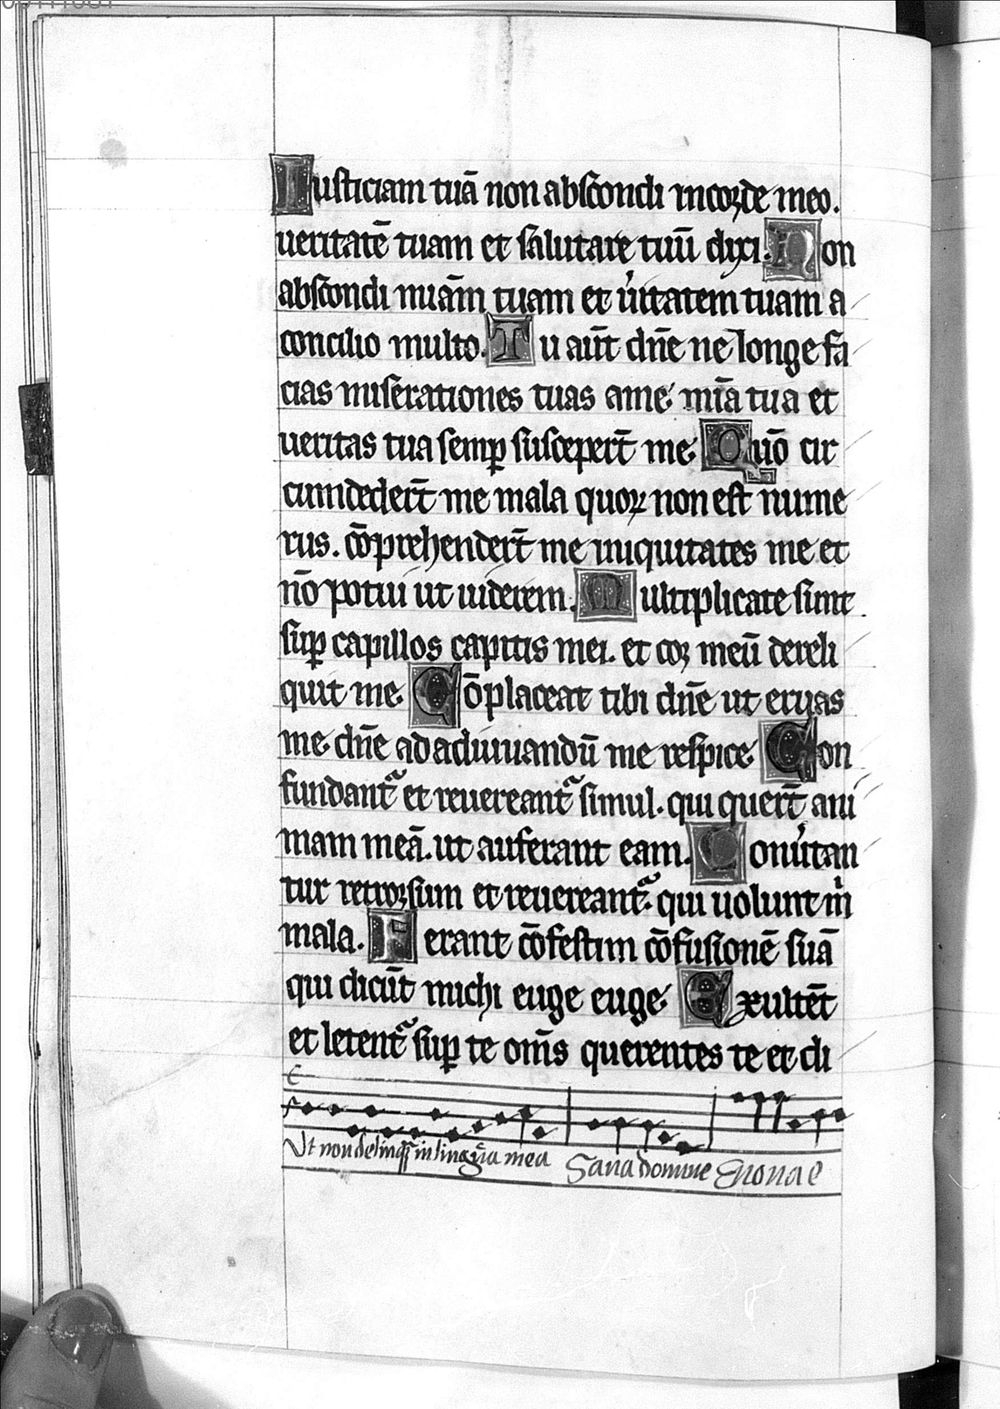 Iusticiam tuā non abscondi in corde meo.
ueritatē tuam et salutare tuū dixi. Non
abscondi miām tuam et u̾itatem tuam a
concilio multo. Tu aūt dn̄e ne longe fa
cias miserationes tuas a me. mīa tua et
ueritas tua semp susceperūt me. Quō cir
cumdederūt me mala quoꝝ non est nume
rus. cōprehenderūt me iniquitates me et
nō potui ut uiderem. Multiplicate sunt
sup capillos capitis mei. et cor meū dereli
quit me. Cōplaceat tibi dn̄e ut eruas
me. dn̄e ad adiuuandū me respice. Con
fundant᷑ et reuereant᷑ simul. qui querūt ani
mam meā. ut auferant eam. Conu̾tan
tur retrorsum et reuereant᷑. qui uolunt m̍
mala. Ferant cōfestim cōfusionē suā
qui dicūt michi euge euge. Exultēt
et letent᷑ sup te om̄s querentes te et di
Ut non delinquā in lingua mea Sana domine Euouae